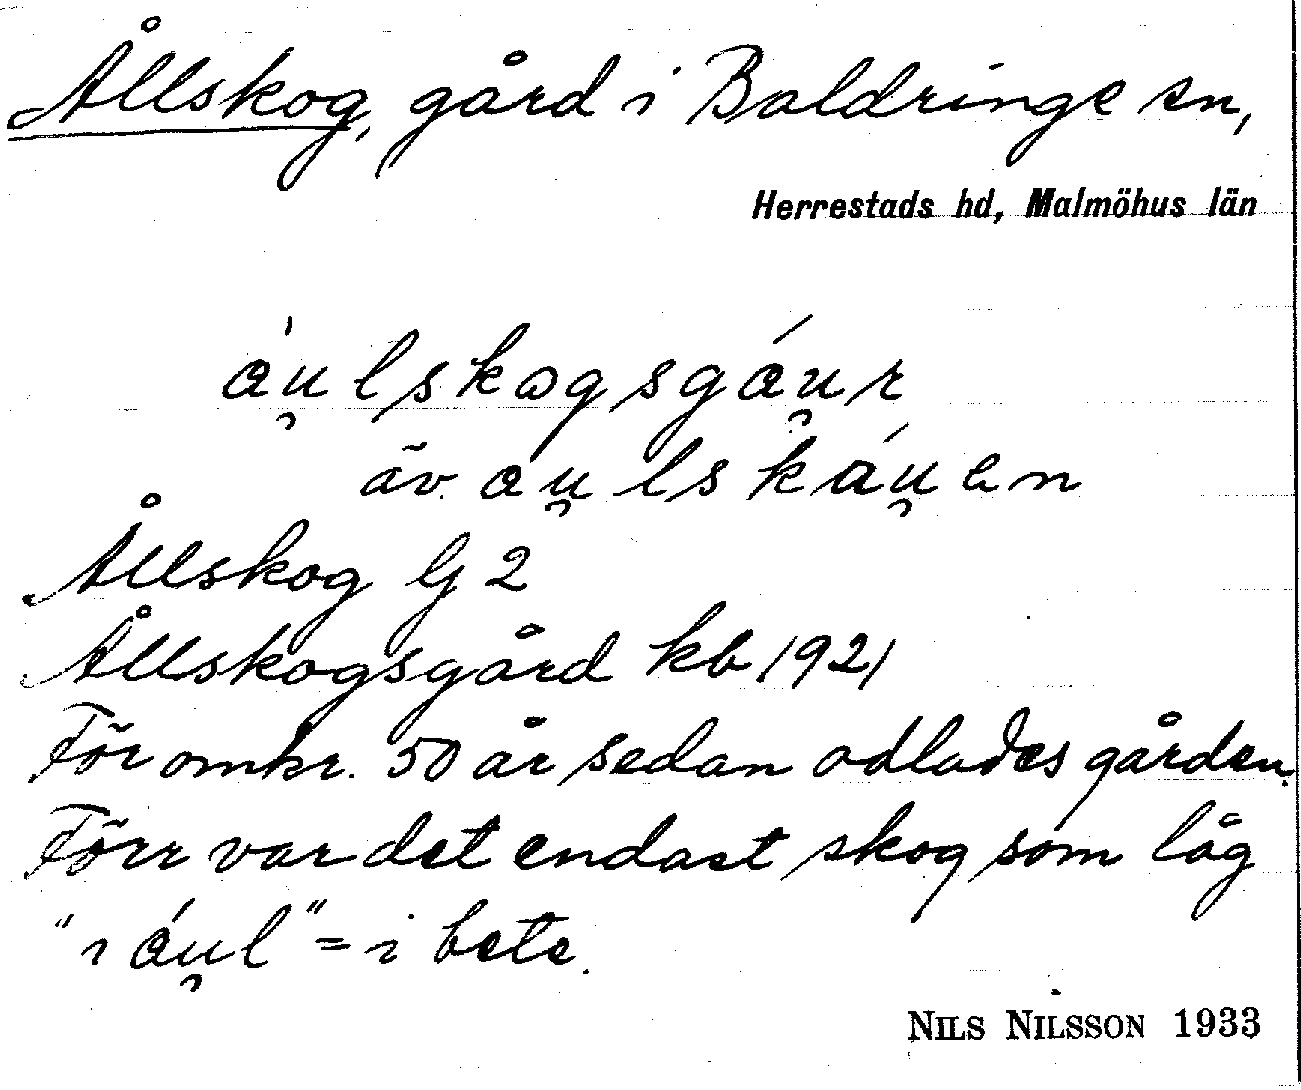 Ållskog, gård i Baldringe sn,
Herrestads hd, Malmöhus län
áu̯lskogsgáu̯r
äv. au̯lskáu̯en
Ållskog G 2
Ållskogsgård kb 1921
För omkr. 50 år sedan odlades gården.
Förr var det endast skog som låg
"i áu̯l" = i bete.
NILS NILSSON 1933